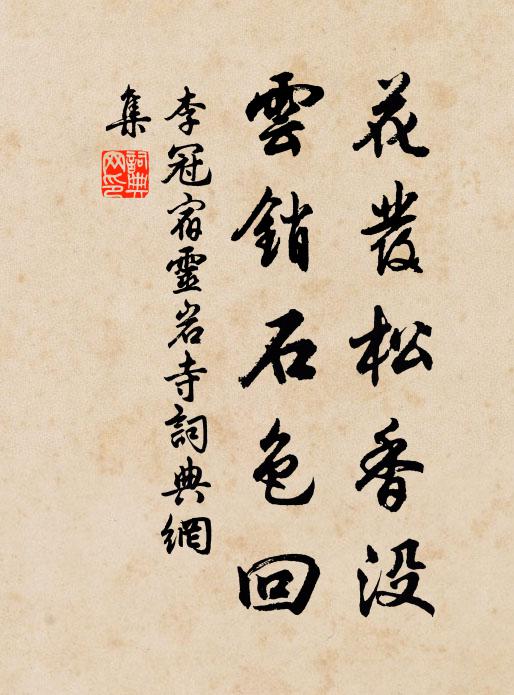 花發松香没
雲銷石色回
李冠宿靈岩寺詞典網
集
詞典
网印